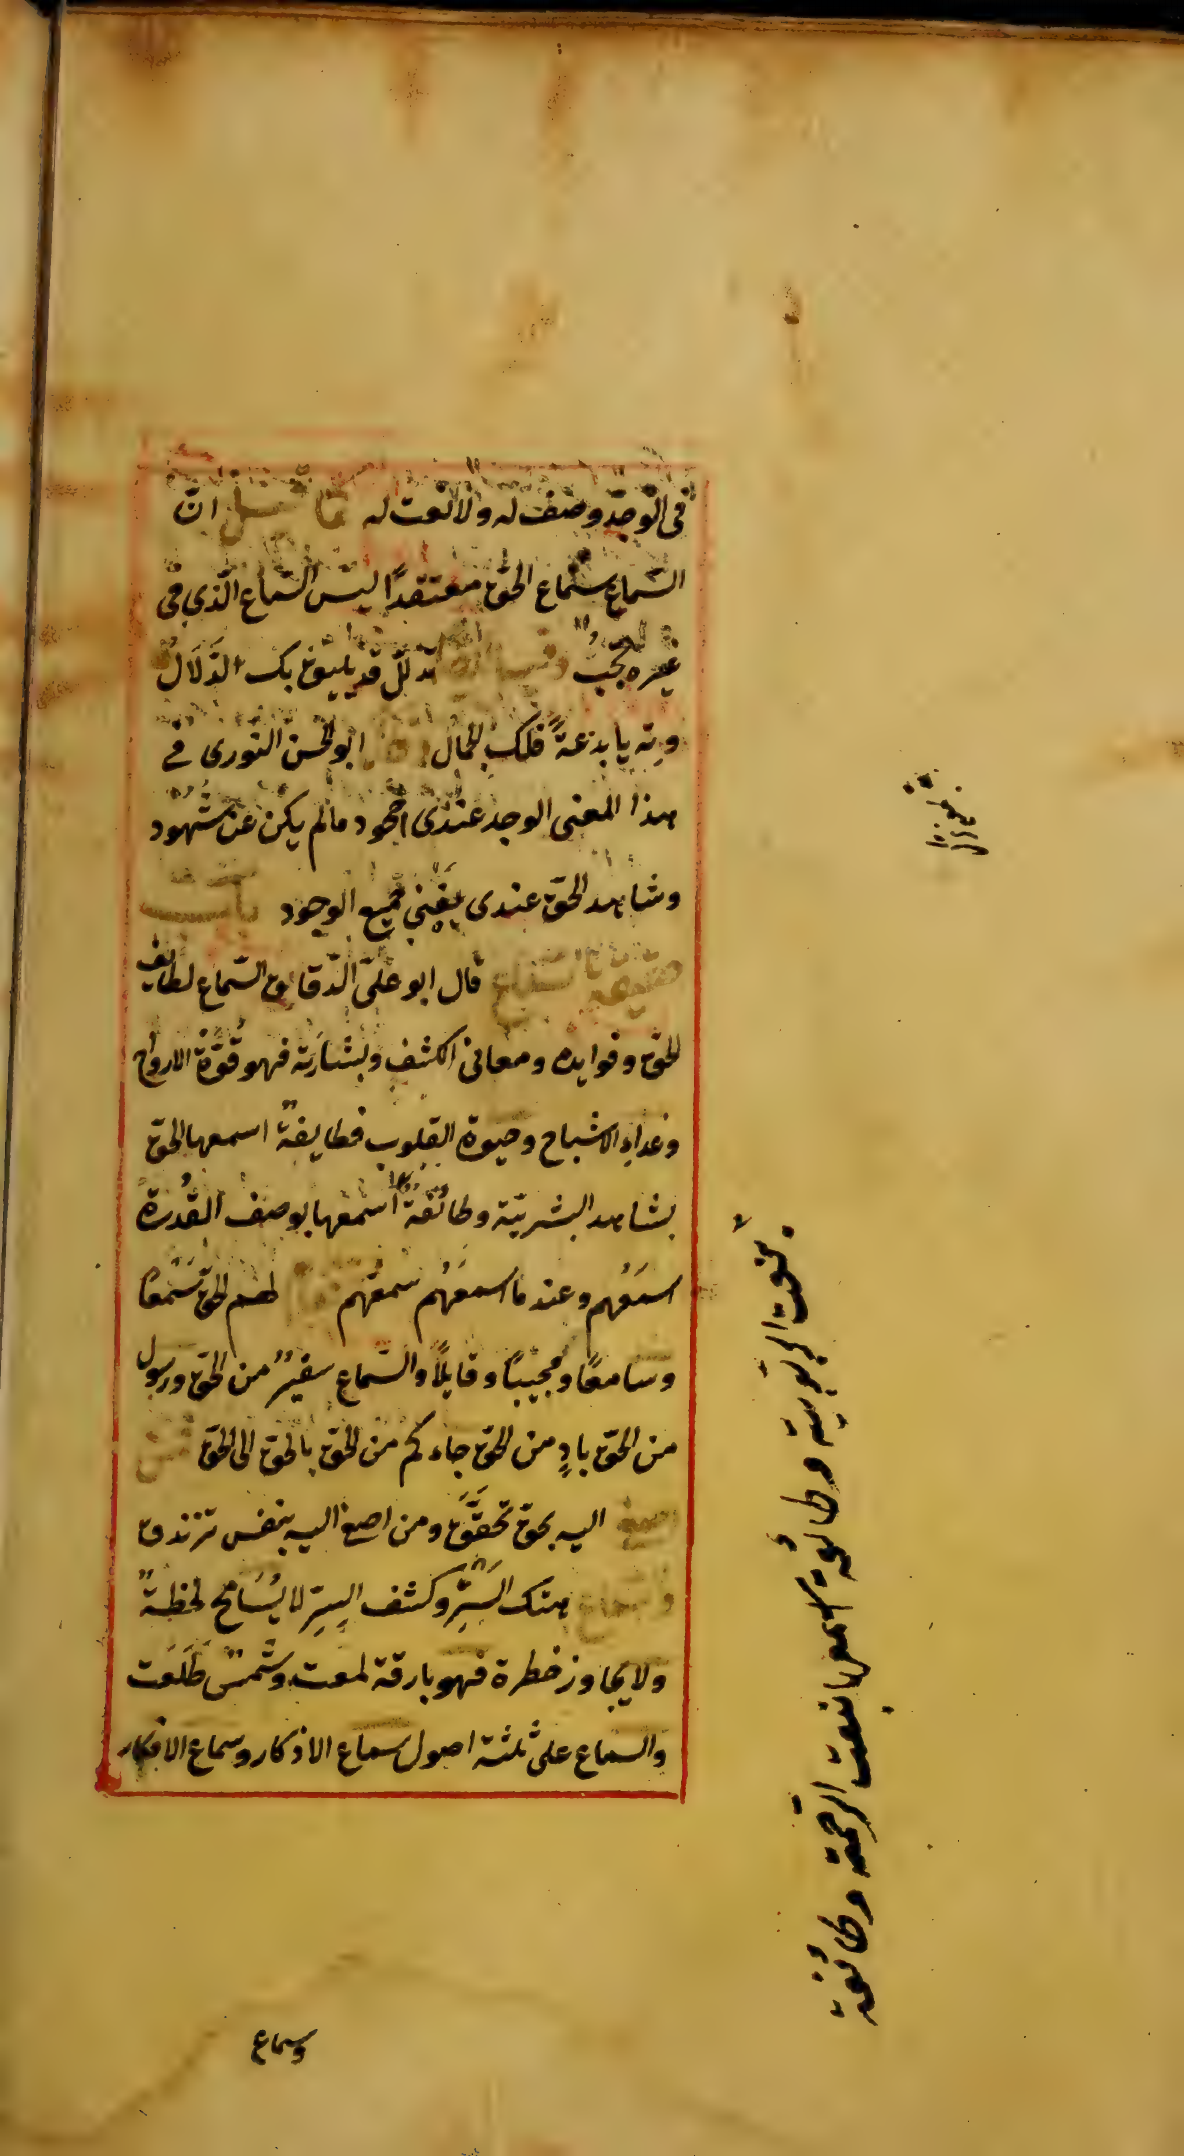 فى الوجد وصف له ولا نعت له كما قيل ان
السّماع سماع الحقّ معتقدًا ليس السّماع الّذي فى
غيره عجبُ وقيل ايضا تدلّل قد يليق بك الدّلال
وته يا بدعةً فلك الجمال وقال ابو الحسن النّورى فى
هذا المعنى الوجد عندى جحود مالم يكن عن شُهُود
وشاهد الحقّ عندى يُفنِي جميع الوجود باب
حقيقة السّماع قال ابو علىّ الدّقاق السّماع لطايف
الحقّ وفوايده ومعانى الكشف وبشارته فهو قوّة الارواح
وغداء الاشباح وحيوة القلوب فطايفةٌ اسمعها الحقّ
بشاهد البشريّة وطائفةٌ اسمعها بوصف القُدرة
اسمَعَهم وعند ما اسمعَهُم سمعهم لهم الحقّ مَسْمعًا
وسامعًا ومجيبًا وقايلًا والسّماع سفيرٌ من الحقّ ورسول
من الحقّ بادٍ من الحقّ جاءكم من الحقّ بالحقّ الى الحقّ فمن
اصغى اليه بحقّ تحقَّقَ ومن اصغى اليه بنفس تزندق
والسّماع هتك السَّترِ وكشف السِرِّ لا يُسَامح لحظةً
ولا يجاوز خطرة فهو بارقة لمعت وشمسٌ طَلَعَت
والسماع على ثلثة اصول سماع الاذكار وسماع الافكار
وسماع
بنعت الرّبوبيّة وطائفة اسمعها بنعت الرّحمة وطائفة